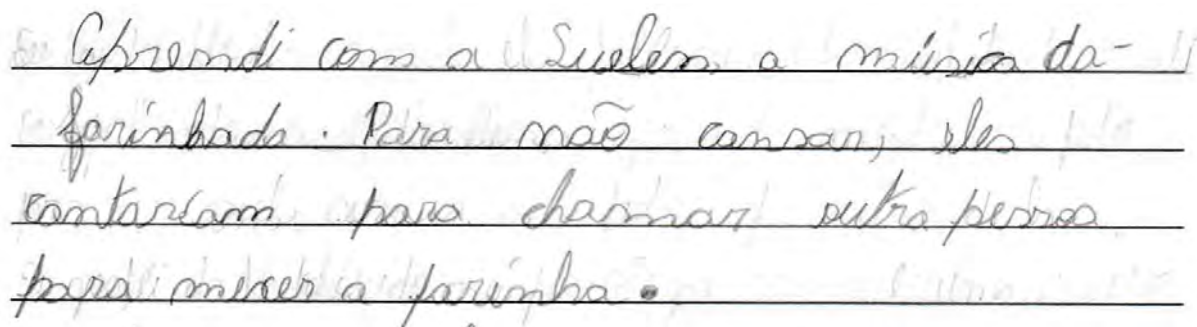 Aprendi com a Suelen a música da-
farinhada. Para não cansar, eles
cantariam para chamar outra pessoa
para mexer a farinha.